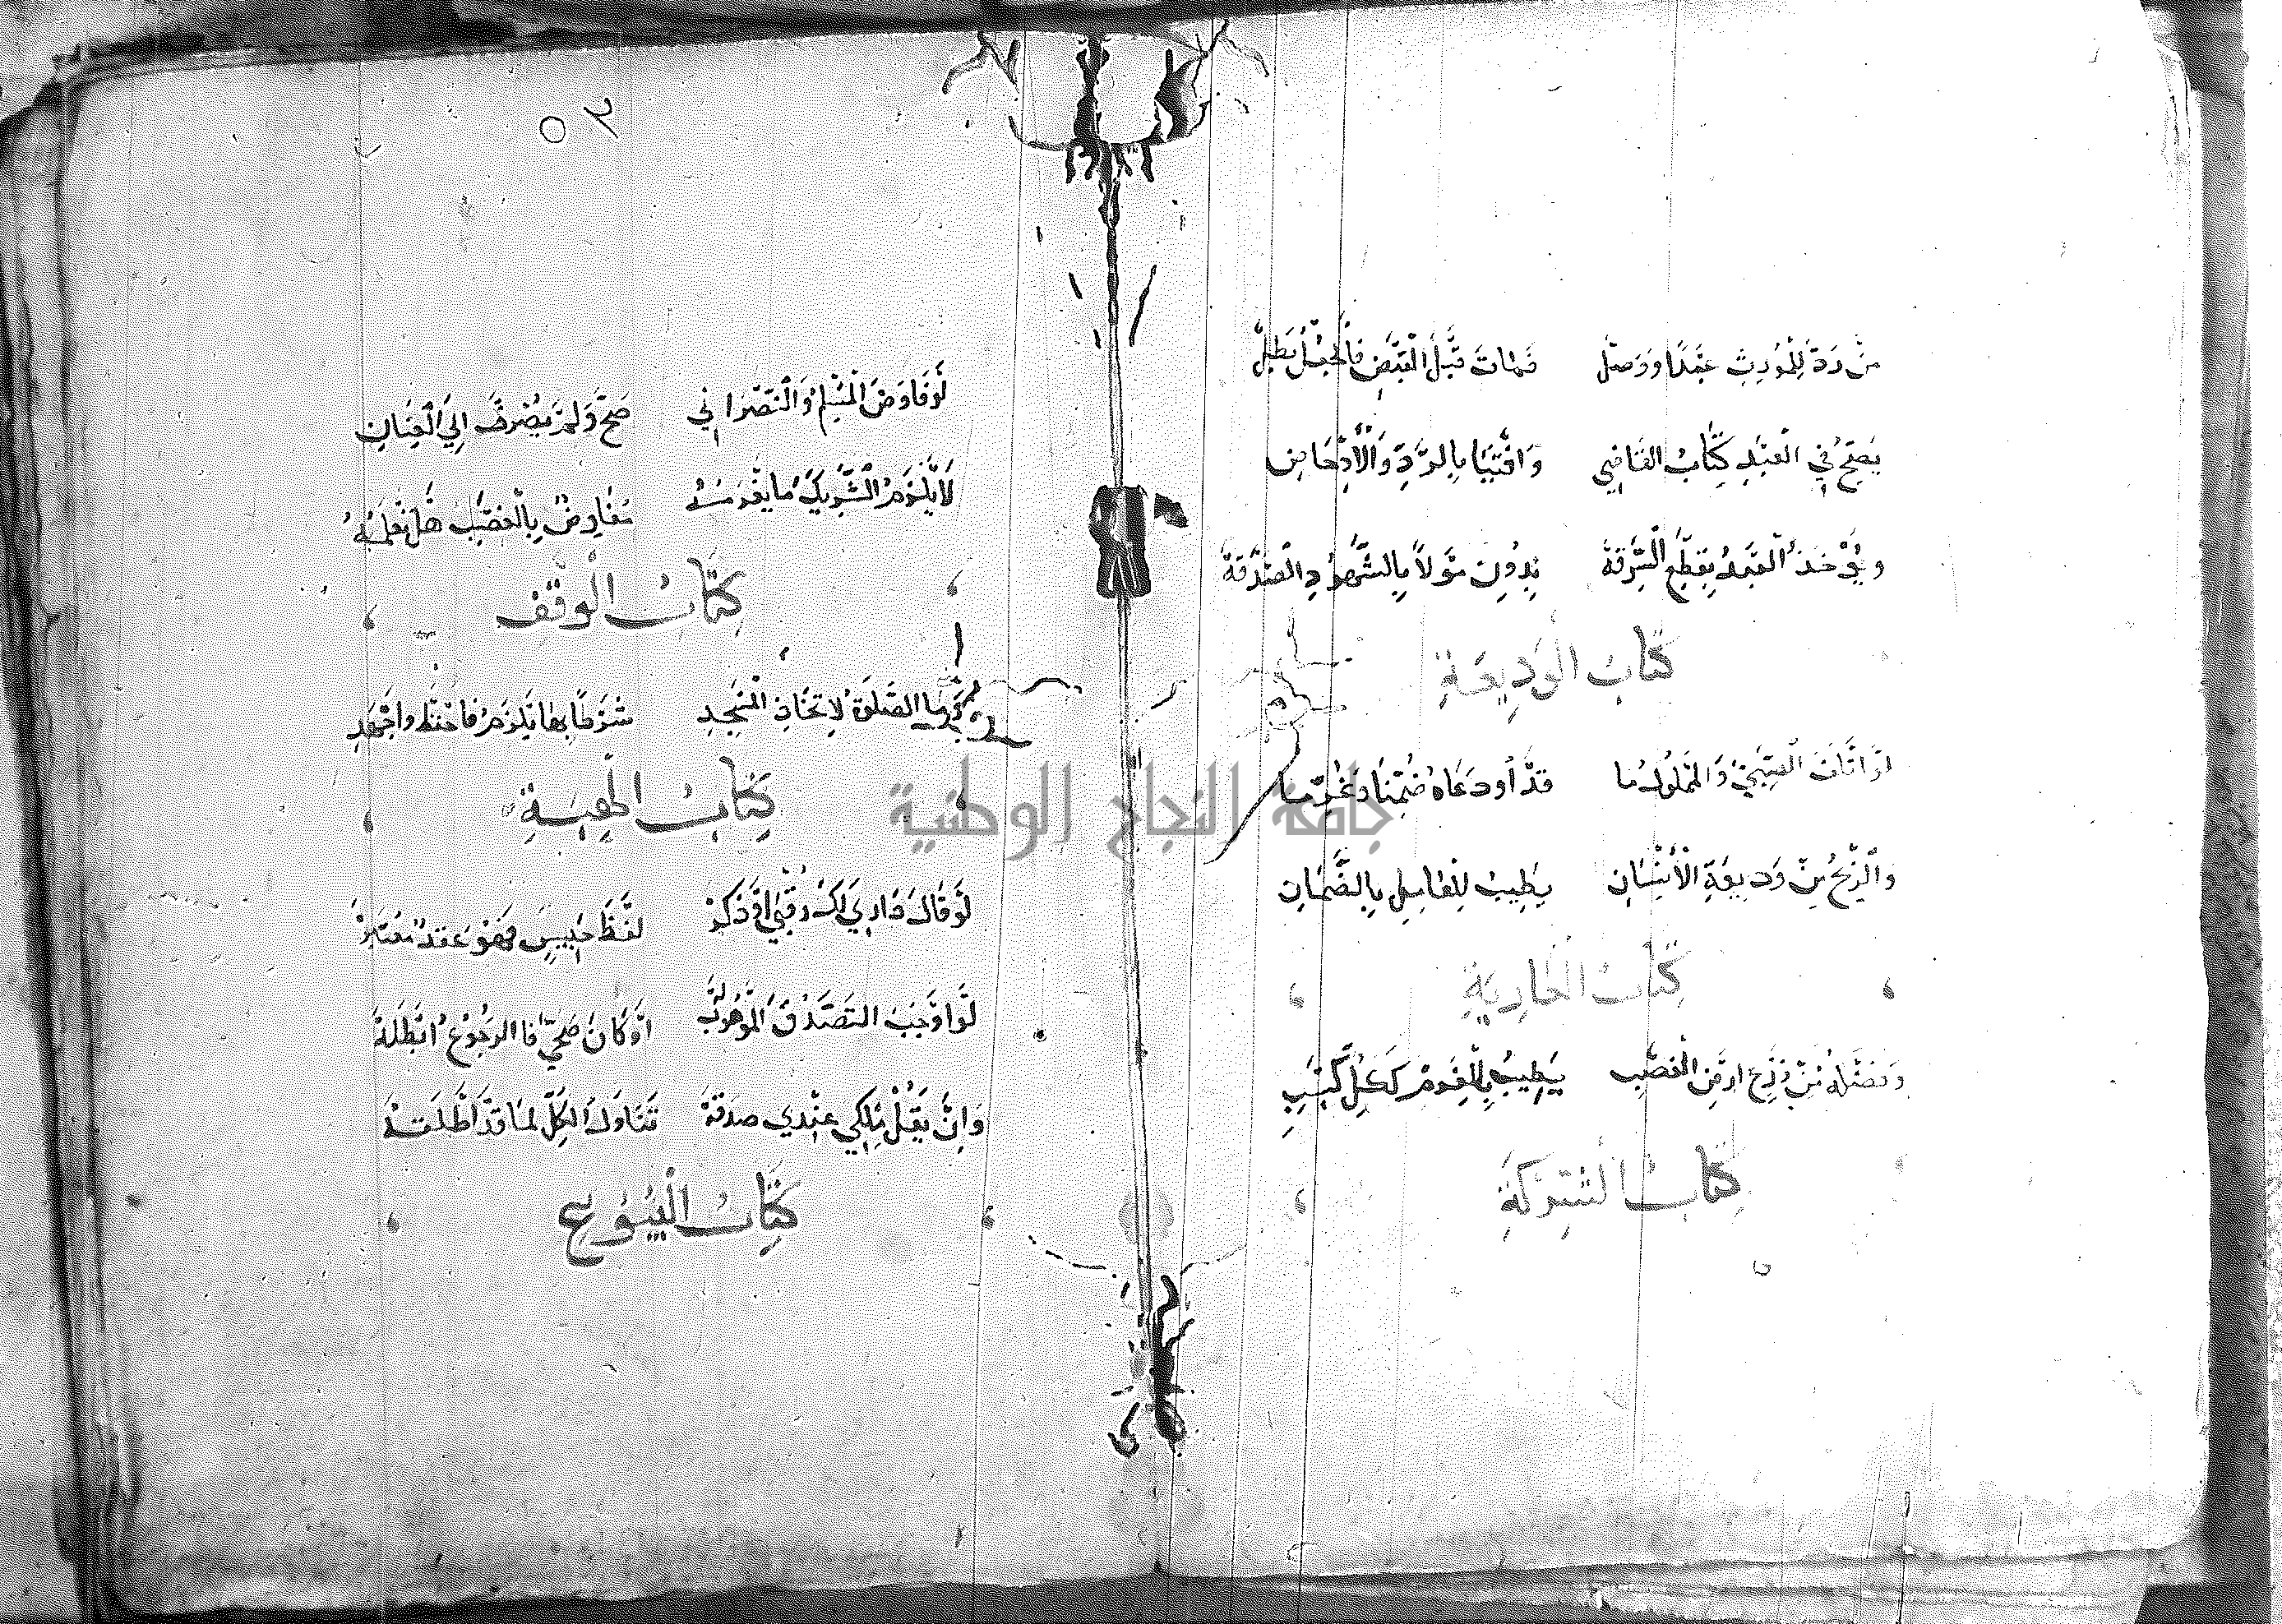 مَنْ رَدَّ لِلْمُورِثِ عَبْدًا وَوَصَلْ فَمَاتَ قَبْلَ الْقَبْضِ فَالْجُعْلُ بَطَلْ
يَصِحُّ فِي الْعَبْدِ كِتَابُ الْقَاضِي وَافْتَيَا بِالرَّدِّ وَالْأَدْحَاضِ
وَيُؤْخَذُ الْعَبْدُ بِقَطْعِ السَّرِقَةْ بِدُونِ مَوْلًا بِالشُّهُودِ الصَّدَقَةْ
كِتَابُ الْوَدِيعَةِ
لَوْ اتْلَفَ الصَّبِيُّ وَالْمَمْلُوكُ مَا قَدْ أودَعَاهُ ضُمِّنَا وَغُرِّمَا
وَالرِّبْحُ مِنْ وَدِيعَةِ الْأَنْسَانِ يَطِيبُ لِلْعَامِلِ بِالضَّمَانِ
كِتَابُ الْعَارِيَةِ
وَفَضْلُهُ مِنْ زَرْعِ ارْضِ الْغَصْبِ يَطِيبُ بِالْغُرْمِ كَكُلِّ كَسْبِ
كِتَابُ الشِّرْكَةِ
٦٥
لَوْ فَاوَضَ الْمُسْلِمُ وَالنَّصْرَانِي صَحَّ وَلَمْ يُصْرَفْ اِلَي الْعِنَانِ
لَا يَلْزَمُ الشَّرِيكَ مَا يَغْرَمُهُ مُفَاوِضٌ بِالْغَصْبِ هَلْ تَعْلَمُهُ
كِتَابُ الْوَقْفِ
الصَّلَوةُ لِاتِّخَاذِ الْمَسْجِدِ شَرْطًا بِهَا يَلْزَمُ فَاحْفَظْ وَاجْهَدِ
كِتَابُ الْهِبَةِ
لَوْ قَالَ دَارِي لَكَ رُقْبَي اوْ ذَكَرْ لَفْظَ حَبِيسٍ فَهْوَ عَقْدٌ مُعْتَبَرْ
لَوْ اوْجَبَ التَّصَدُّقَ الْمَوْهُوبُ لَهْ اوْ كَانَ ضَحَّي فَالرُّجُوعُ ابْطَلَهْ
وَاِنْ يَقُلْ مِلْكِي عِنْدِي صَدَقَةْ تَنَاوَلَ الْكُلَّ لِمَا قَدْ اَطْلَقَهْ
كِتَابُ الْبُيُوعِ
جامعة النجاح الوطنية